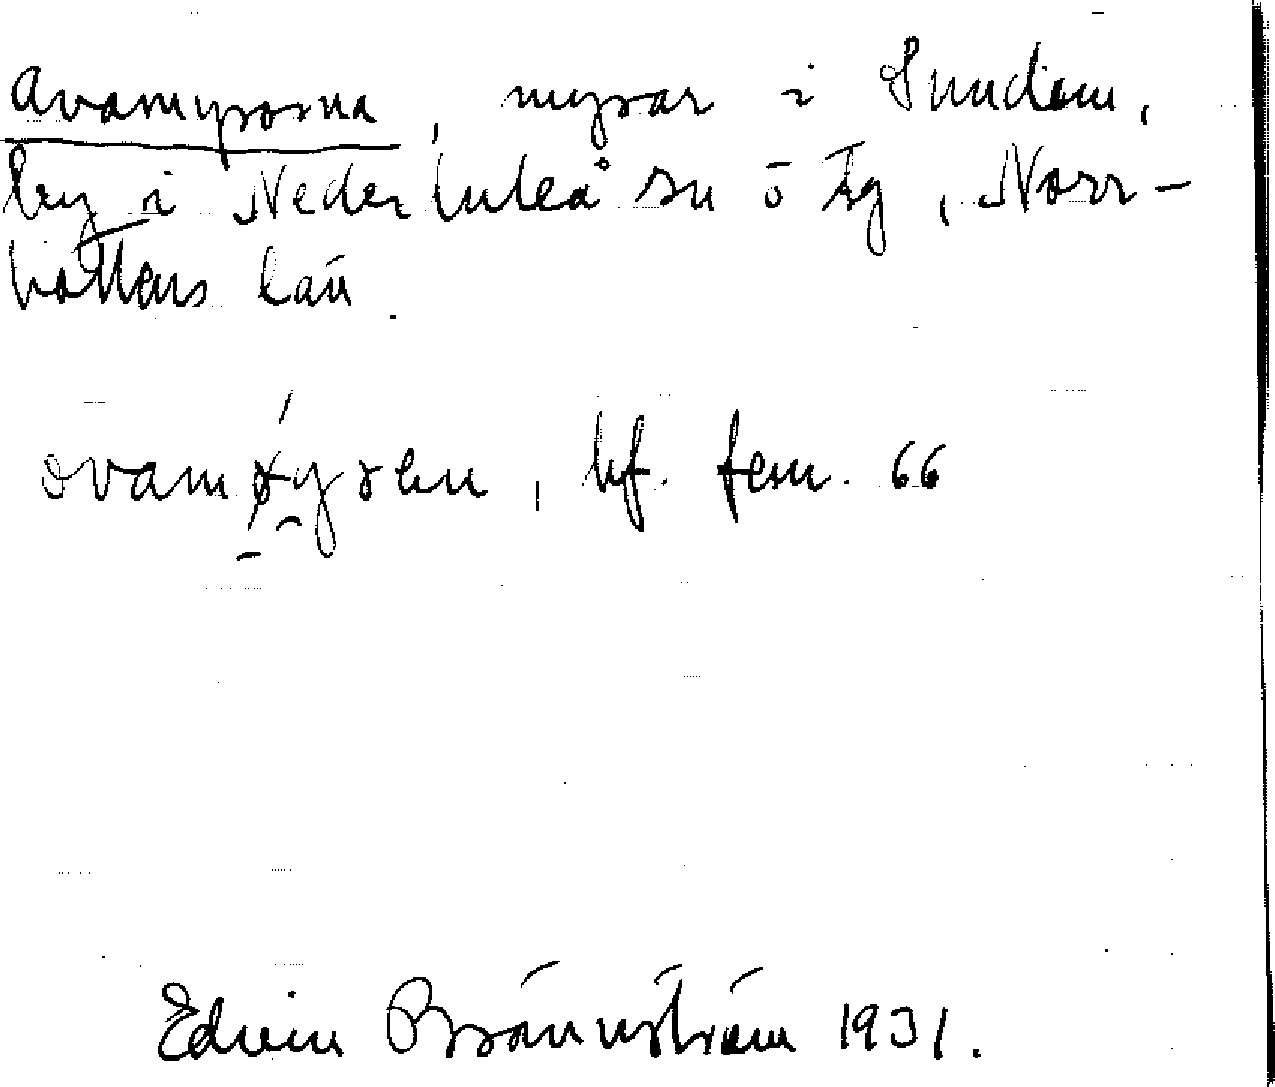 Avamyrorna, myrar i Sundom,
by i Nederluleå sn ö tg, Norr-
bottens län.
bf. fem. 66
Edvin Brännström 1931.